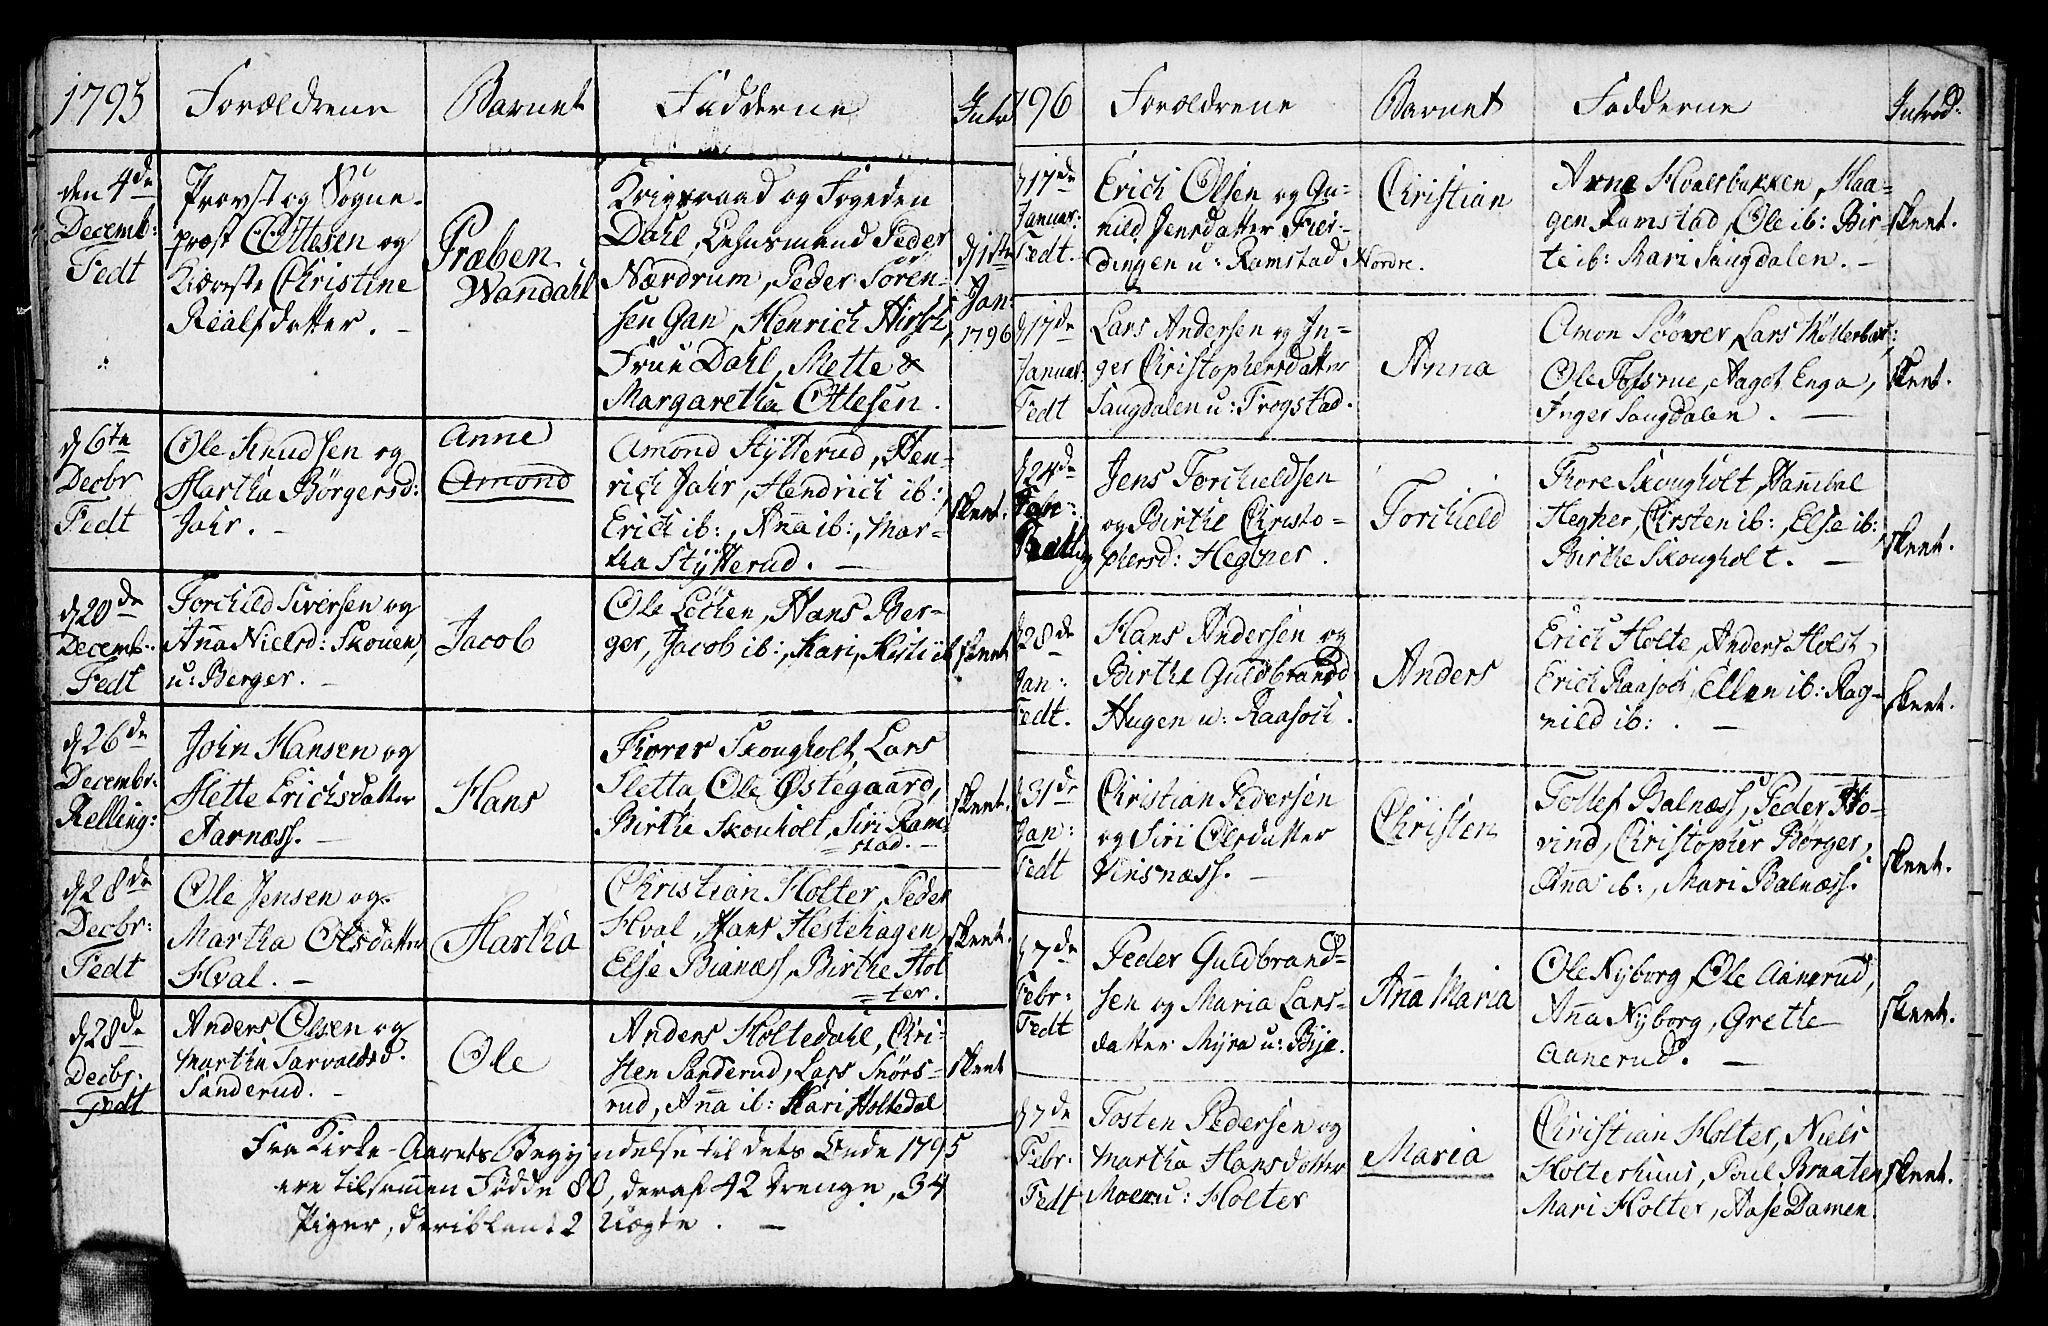 1795 Forældrene Barnet Fadderne Intr
den 4de
Decemb:
Fedt
Provst og Sogne-
præst Ottesen og
Kiæreste Christine
Realfsdatter. -
Præben
Wandahl
Krigsraad og Fogeden
Dahl, Lehnsmend Peder
Nærdrum, Peder Sören-
sen Gan, Henrich Hirsch,
Frue Dahl, Mette &
Margaretha Ottesen.
d 1ste
Jan:
1796
d 6te
Decbr
Fedt
Ole Knudsen og
Martha Börgersd:
Jahr. -
Anne
Amond
Amond Stÿtterud, Hen-
rich Jahr, Hendrich ib:,
Erich ib:, Aña ib:, Mar-
tha Stÿtterud. -
skeet.
d 20de
Decemb:
Fedt
Torchild Siversen og
Aña Nielsd: Skouen,
u: Berger. -
Jacob
Ole Löchen, Hans Ber-
ger, Jacob ib:, Kari, Kisti ib
skeet
d 26de
Decembr:
Relling:
John Hansen og
Mette Erichsdatter
Aarnæss. -
Hans
Thorer Skougholt, Lars
Sletta Ole Østegaard,
Birthe Skouholt, Siri Ram-
stad. -
skeet.
d 28de
Decbr:
Fedt
Ole Jensen og
Martha Olsdatter
Hval. -
Martha
Christian Holter, Peder
Hval, Hans Hestehagen
Else Bianæss, Birthe Hol
ter.
skeet.
d 28de
Decbr:
Fedt
Anders Olsen og
Martha Tarvaldsd.
Sanderud. -
Ole
Anders Holtedahl, Chri-
sten Sanderud, Lars Snörs-
rud, Aña ib: Mari Holtedal
skeet
Fra Kirke-Aarets Begÿndelse til dets Ende 1795
ere tilsamen Fødde 80, deraf 42 Drenge, 34
Piger, deriblant 2 Uægte. -
196 Forældrene Barnet Fadderne Introd:
d 17de
Januar:
Fedt.
Erich Olsen og Gu-
nild Jensdatter Fier-
dingen u: Ramstad Nordre.
Christian
Arne Hvalsbakken, Haa-
gen Ramstad, Ole ib: Bir-
te ib: Mari Saugdalen. -
skeet.
d 17de
Januar:
Fedt
Lars Andersen og In-
ger Christophersdatter
Saugdalen u: Trogstad.
Anna
Amon Söover, Lars Möllerbak:,
Ole Tofsrue, Aaget Enga,
Inger Saugdalen. -
skeet.
d 24de
Febr:
Relling
Jens Torchieldsen
og Birthe Christo-
phersd: Hegner.
Torchield
Thore Skougholt, Hanibal
Hegner, Chrsten ib:, Else ib:
Birthe Skougholt. -
skeet.
d 28de
Jan:
Fedt.
Hans Andersen og
Birthe Guldbrandd
Hugen u: Raasoch.
Anders
Erich Holte, Anders Holst,
Erich Raasoch, Ellen ib: Rag-
nild ib: . -
skeet.
d 31de
Jan:
Fedt
Christian Pedersen
og Siri Olsdatter
Vinsnæss. -
Christen
Tollef Balnæss, Peder Ho-
vind, Christopher Börger,
Aña ib:, Mari Balnæss.
skeet.
d 7de
Febr:
Fedt
Peder Guldbrand-
sen og Maria Lars-
datter Mÿra u: Bije.
Aña Maria
Ole Nÿborg, Ole Aanerud,
Aña Nÿborg, Grethe
Aanerud. -
skeet.
d 7de
Febr.
Fedt
Tosten Pedersen og
Martha Hansdatter
Moen u: Holter
Maria
Christian Holter, Niels
Holterhuus, Poul Braaten
Mari Holter, Aase Damen
skeet.